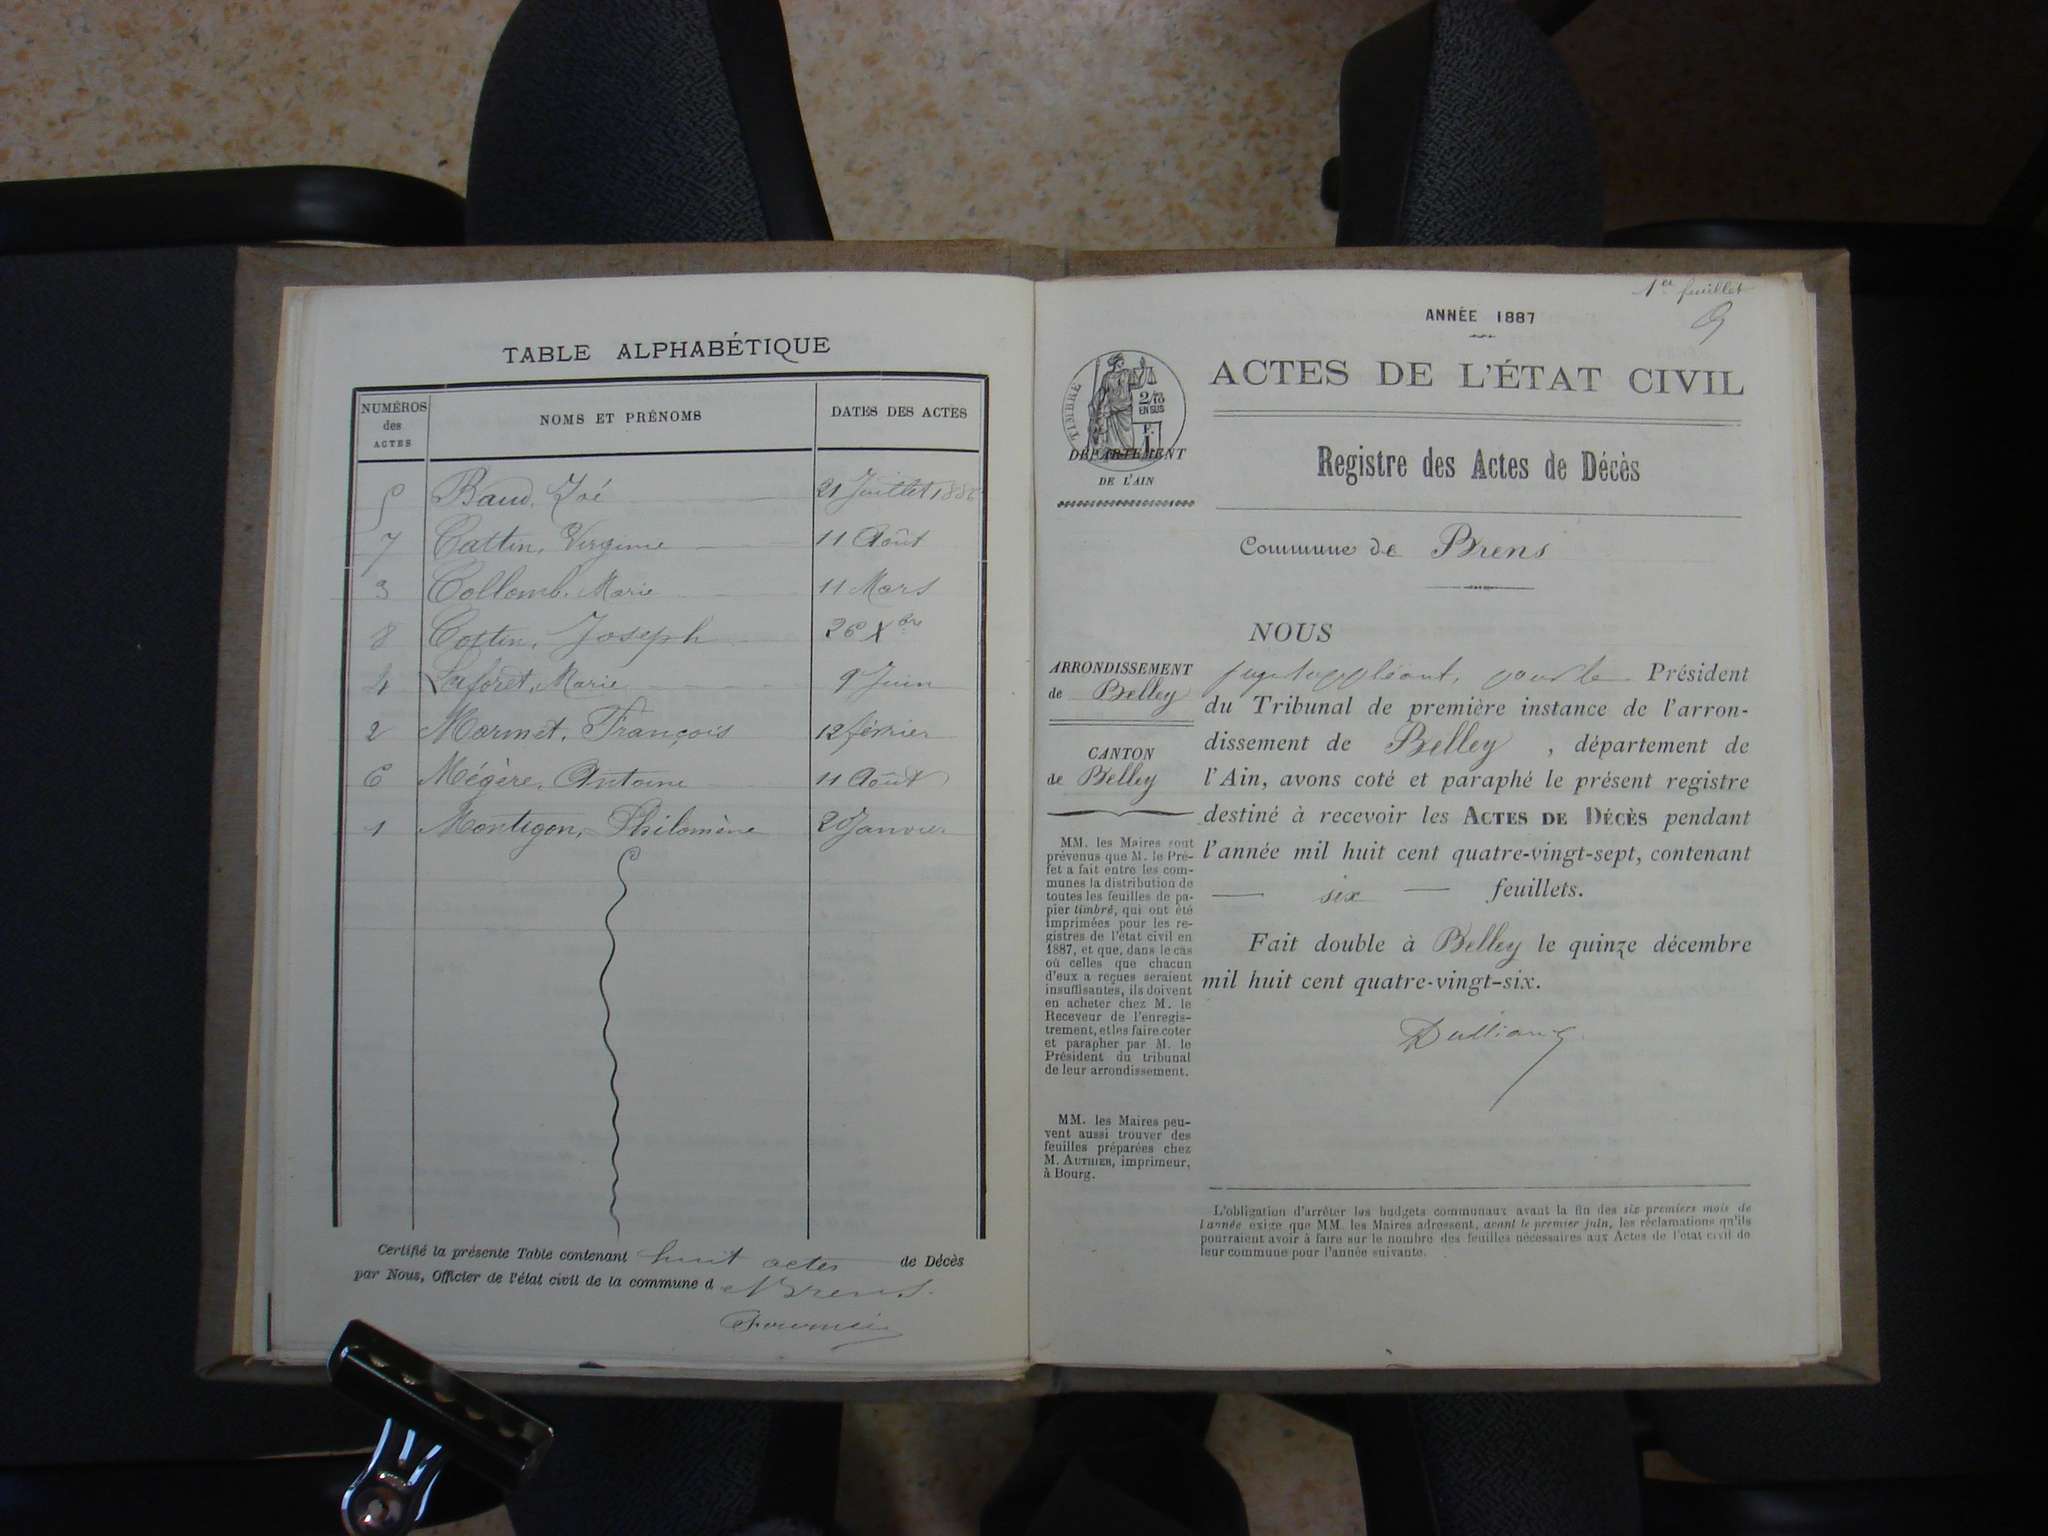 TABLE ALPHABÉTIQUE
NUMÉROS des ACTES
NOMS ET PRÉNOMS
DATES DES ACTES
5 Baud, Zoé 21 Juillet 1886
7 Cattin, Virginie 11 Août
3 Collomb, Marie 11 Mars
8 Cottin, Joseph 26 Xbre
4 Laforêt, Marie 9 Juin
2 Marmet, François 12 février
6 Mégère, Antoine 11 Août
1 Montigon, Philomène 20 Janvier
Certifié la présente Table contenant huit actes de Décès
par Nous, Officier de l'état civil de la commune d Brens.
1er feuillet
ANNÉE 1887
ACTES DE L'ÉTAT CIVIL
TIMBRE
2/10
EN SUS
DÉPARTEMENT
DE L'AIN
Registre des Actes de Décès
Commune de Brens
NOUS
ARRONDISSEMENT
de Belley
CANTON
de Belley
juge suppléant, pour le Président
du Tribunal de première instance de l'arron-
dissement de Belley, département de
l'Ain, avons coté et paraphé le présent registre
destiné à recevoir les ACTES DE DÉCÈS pendant
l'année mil huit cent quatre-vingt-sept, contenant
— six — feuillets.
Fait double à Belley le quinze décembre
mil huit cent quatre-vingt-six.
MM. les Maires sont
prévenus que M. le Pré-
fet a fait entre les com-
munes la distribution de
toutes les feuilles de pa-
pier timbré, qui ont été
imprimées pour les re-
gistres de l'état civil en
1887, et que, dans le cas
où celles que chacun
d'eux a reçues seraient
insuffisantes, ils doivent
en acheter chez M. le
Receveur de l'enregis-
trement, et les faire coter
et parapher par M. le
Président du tribunal
de leur arrondissement.
MM. les Maires peu-
vent aussi trouver des
feuilles préparées chez
M. AUTHIER, imprimeur,
à Bourg.
L'obligation d'arrêter les budgets communaux avant la fin des six premiers mois de
l'année exige que MM. les Maires adressent, avant le premier juin, les réclamations qu'ils
pourraient avoir à faire sur le nombre des feuilles nécessaires aux Actes de l'état civil de
leur commune pour l'année suivante.